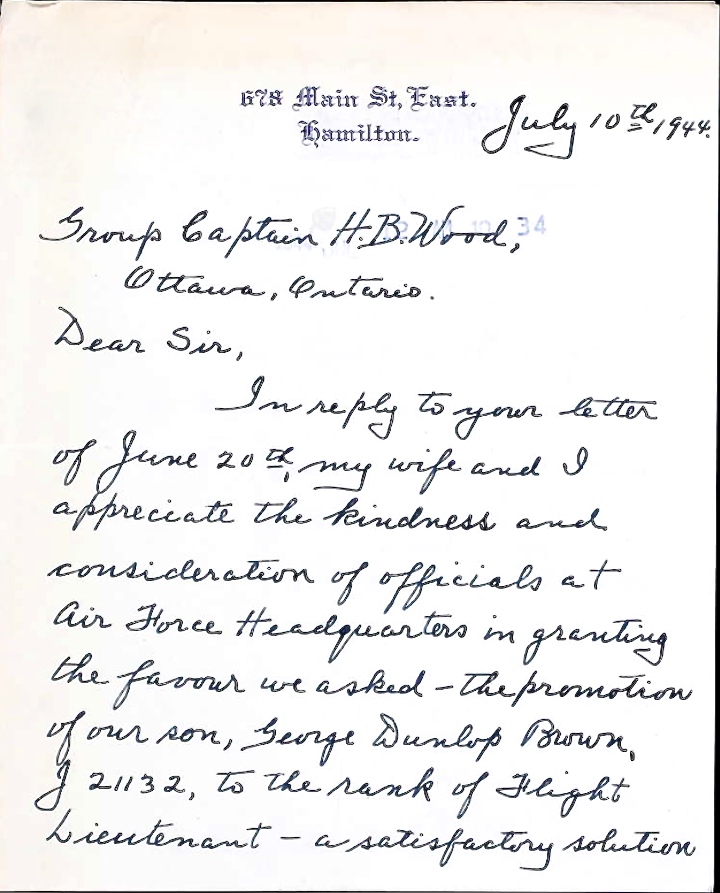 678 Main St, East.
Hamilton.
July 10th, 1944.
Group Captain H.B. Wood,
Ottawa, Ontario.
Dear Sir,
In reply to your letter
of June 20th, my wife and I
appreciate the kindness and
consideration of officials at
Air Force Headquarters in granting
the favour we asked – the promotion
of our son, George Dunlop Brown,
J 21132, to the rank of Flight
Lieutenant – a satisfactory solution